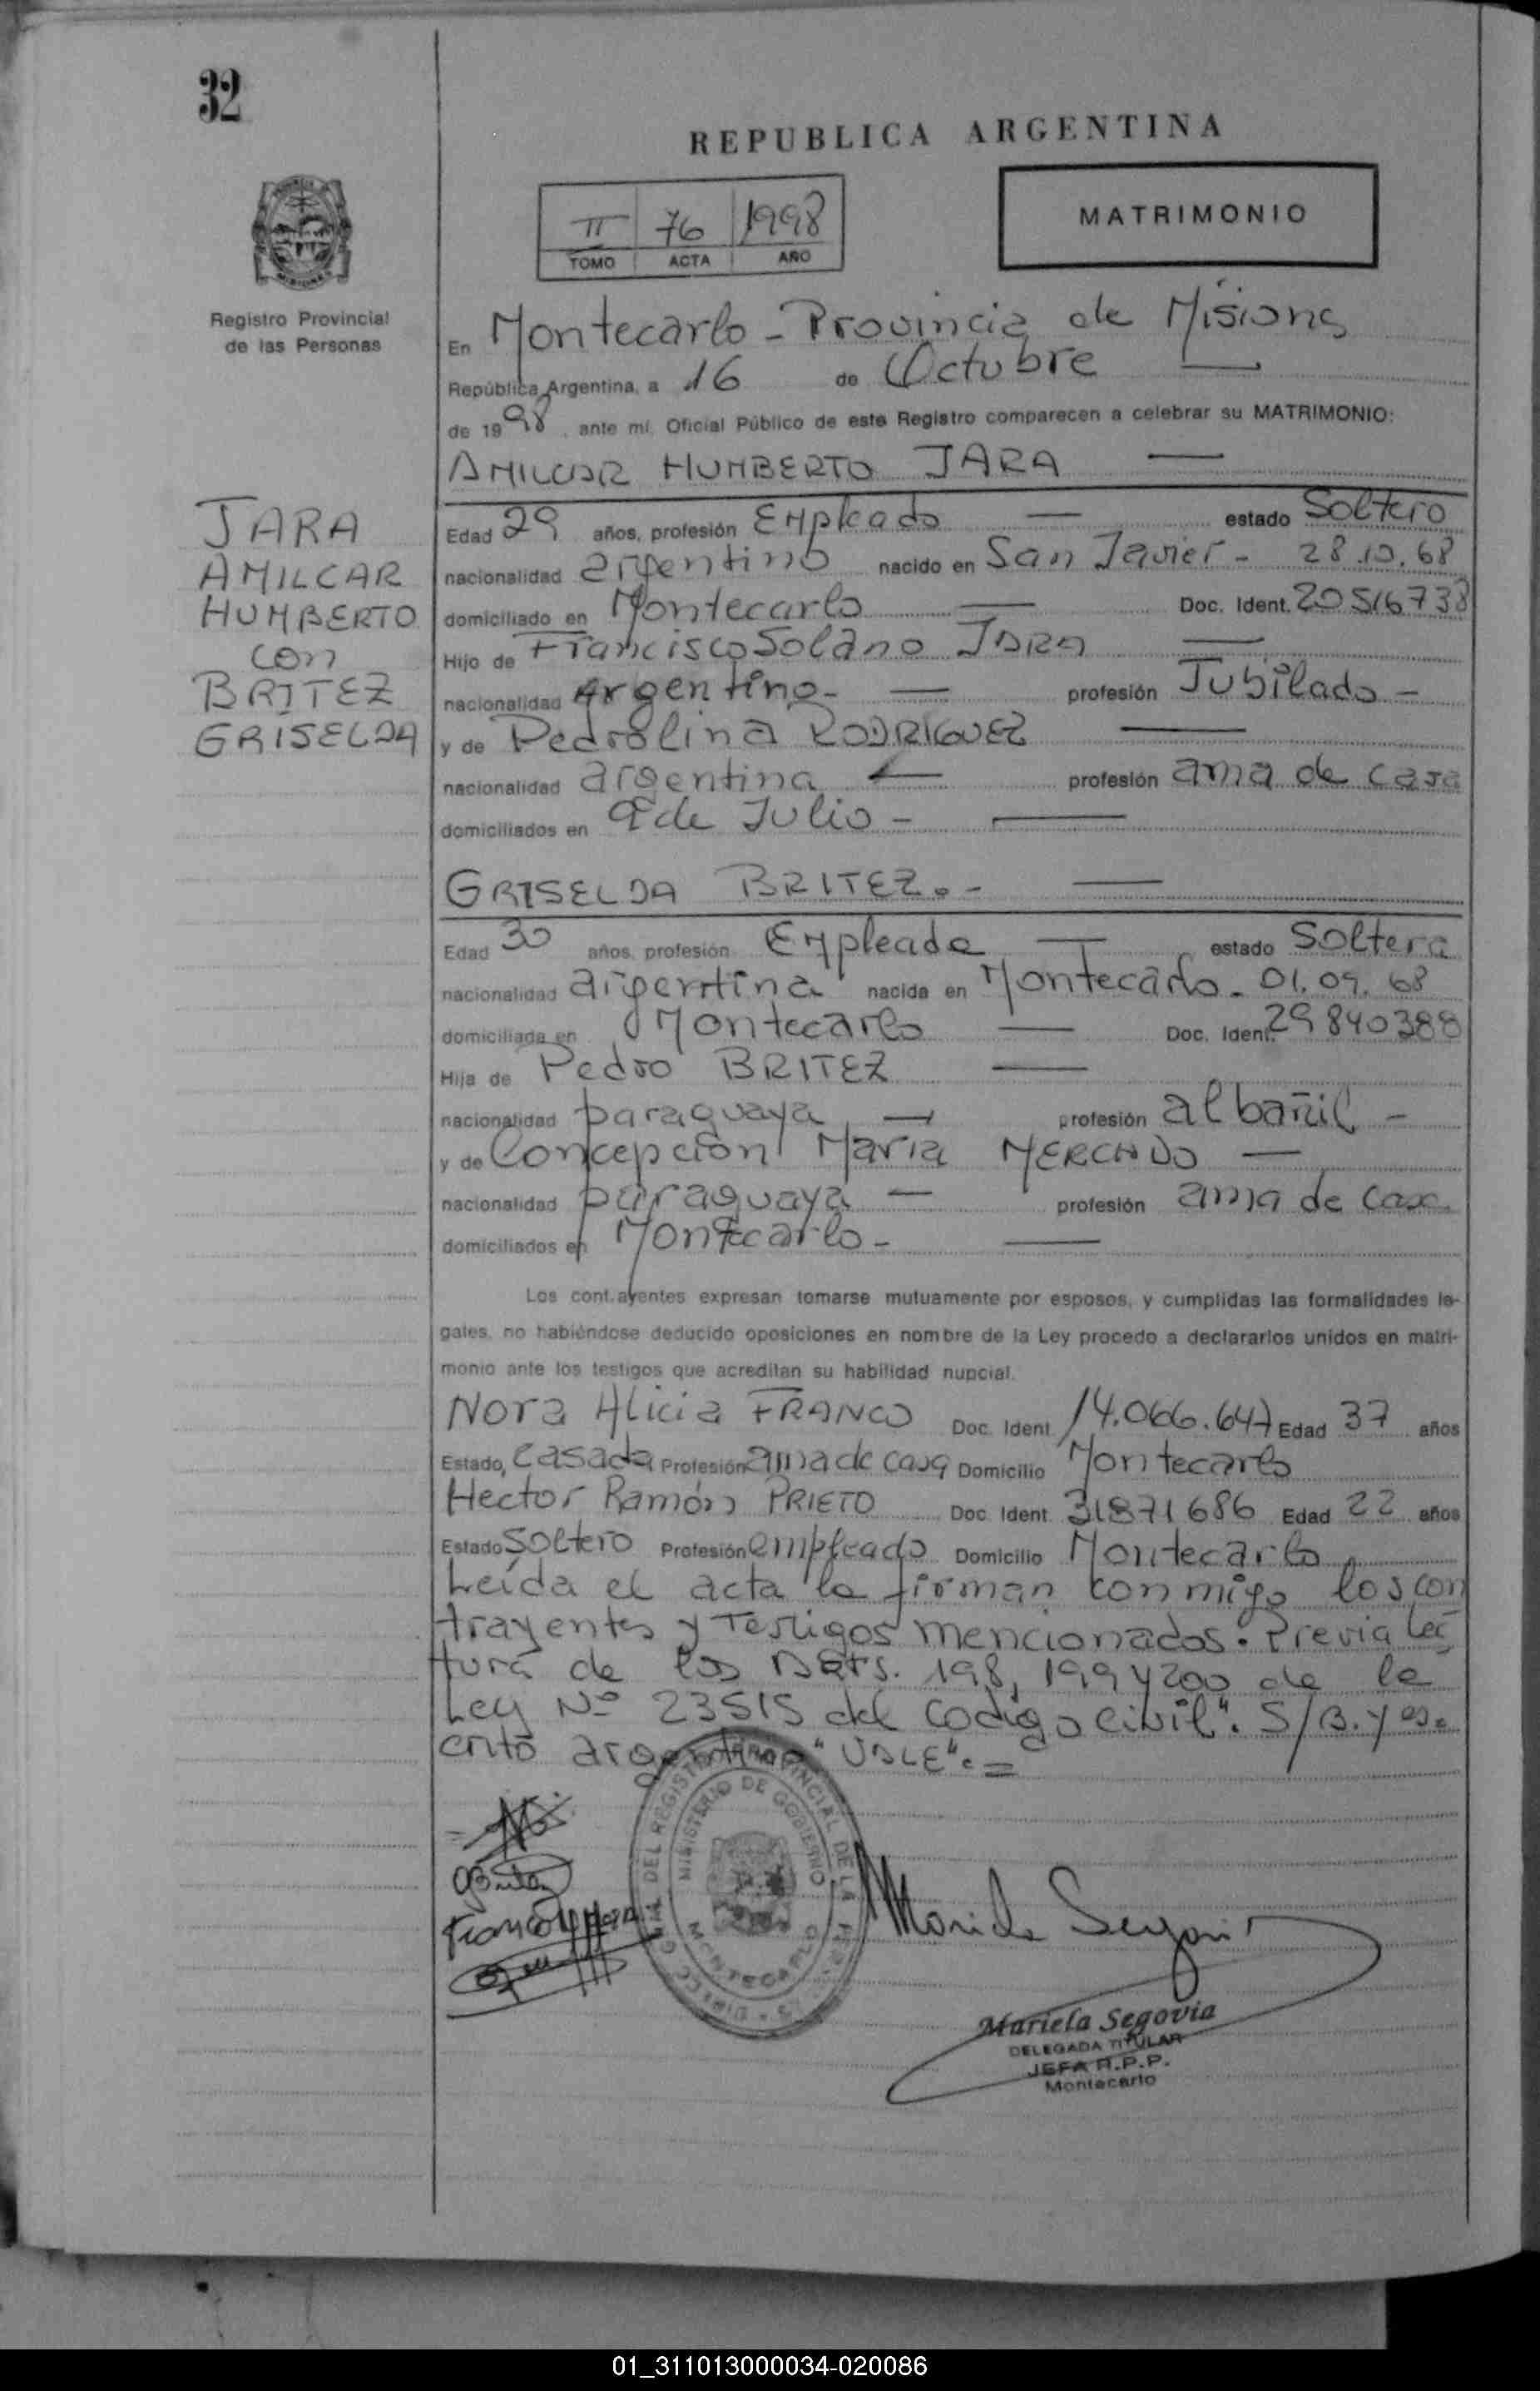 32
REPUBLICA ARGENTINA
II 76 1998
TOMO ACTA AÑO
MATRIMONIO
Registro Provincial
de las Personas
En Montecarlo - Provincia de Misiones
República Argentina, a 16 de Octubre
de 1998, ante mí, Oficial Público de este Registro comparecen a celebrar su MATRIMONIO:
AMILCAR HUMBERTO JARA —
JARA
AMILCAR
HUMBERTO
con
BRITEZ
GRISELDA
Edad 29 años, profesión Empleado — estado Soltero
nacionalidad argentino nacido en San Javier - 28.10.68
domiciliado en Montecarlo — Doc. Ident. 20516738
Hijo de Francisco Solano JARA —
nacionalidad Argentino - — profesión Jubilado -
y de Pedrolina RODRIGUEZ —
nacionalidad argentina — profesión ama de casa
domiciliados en 9 de Julio - —
GRISELDA BRITEZ. - —
Edad 30 años, profesión Empleada — estado Soltera
nacionalidad argentina nacida en Montecarlo - 01.09.68
domiciliada en Montecarlo — Doc. Ident. 29840388
Hija de Pedro BRITEZ —
nacionalidad paraguaya — profesión albañil -
y de Concepción Maria MERCADO —
nacionalidad paraguaya — profesión ama de casa
domiciliados en Montecarlo - —
Los contrayentes expresan tomarse mutuamente por esposos, y cumplidas las formalidades le-
gales, no habiéndose deducido oposiciones en nombre de la Ley procedo a declararlos unidos en matri-
monio ante los testigos que acreditan su habilidad nupcial.
Nora Alicia FRANCO Doc. Ident. 14.066.647 Edad 37 años
Estado, Casada Profesión ama de casa Domicilio Montecarlo
Hector Ramón PRIETO Doc. Ident. 31871686 Edad 22 años
Estado Soltero Profesión empleado Domicilio Montecarlo
Leída el acta la firman conmigo los con
trayentes y Testigos mencionados. Previa lec
tura de los Arts. 198, 199 y 200 de la
Ley Nº 23515 del codigo civil". S/B. y es.
crito argentino "VALE". =
DIRECC. GRAL. DEL REGISTRO PROVINCIAL DE LAS PERSONAS
MINISTERIO DE GOBIERNO
MONTECARLO
Britez
Franco Nora
Mariela Segovia
Mariela Segovia
DELEGADA TITULAR
JEFA R.P.P.
Montecarlo
01_311013000034-020086